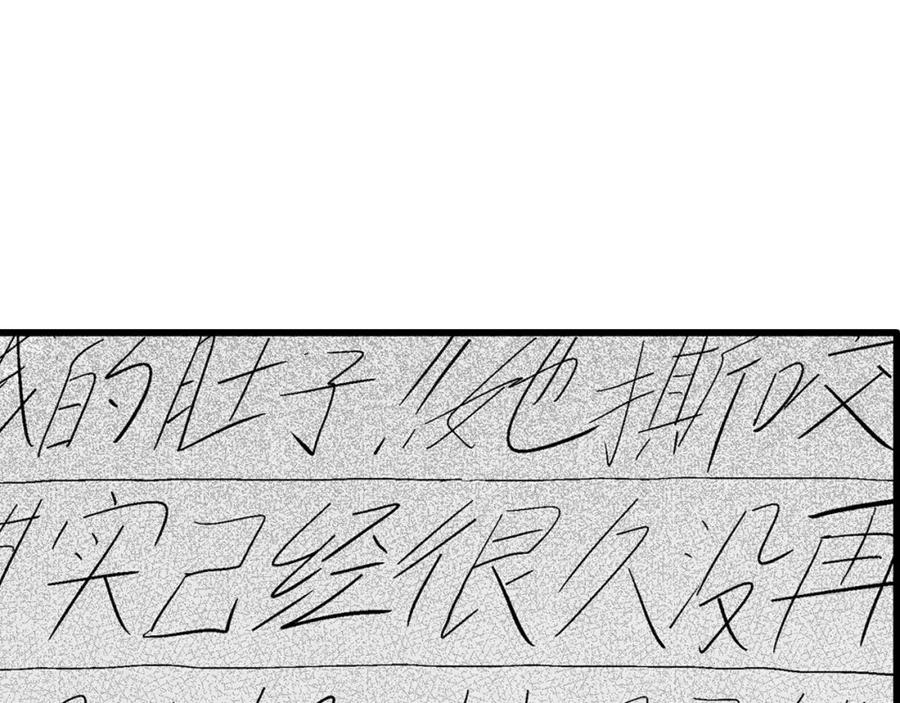 我的肚子!!她撕咬
其实已经很久没再